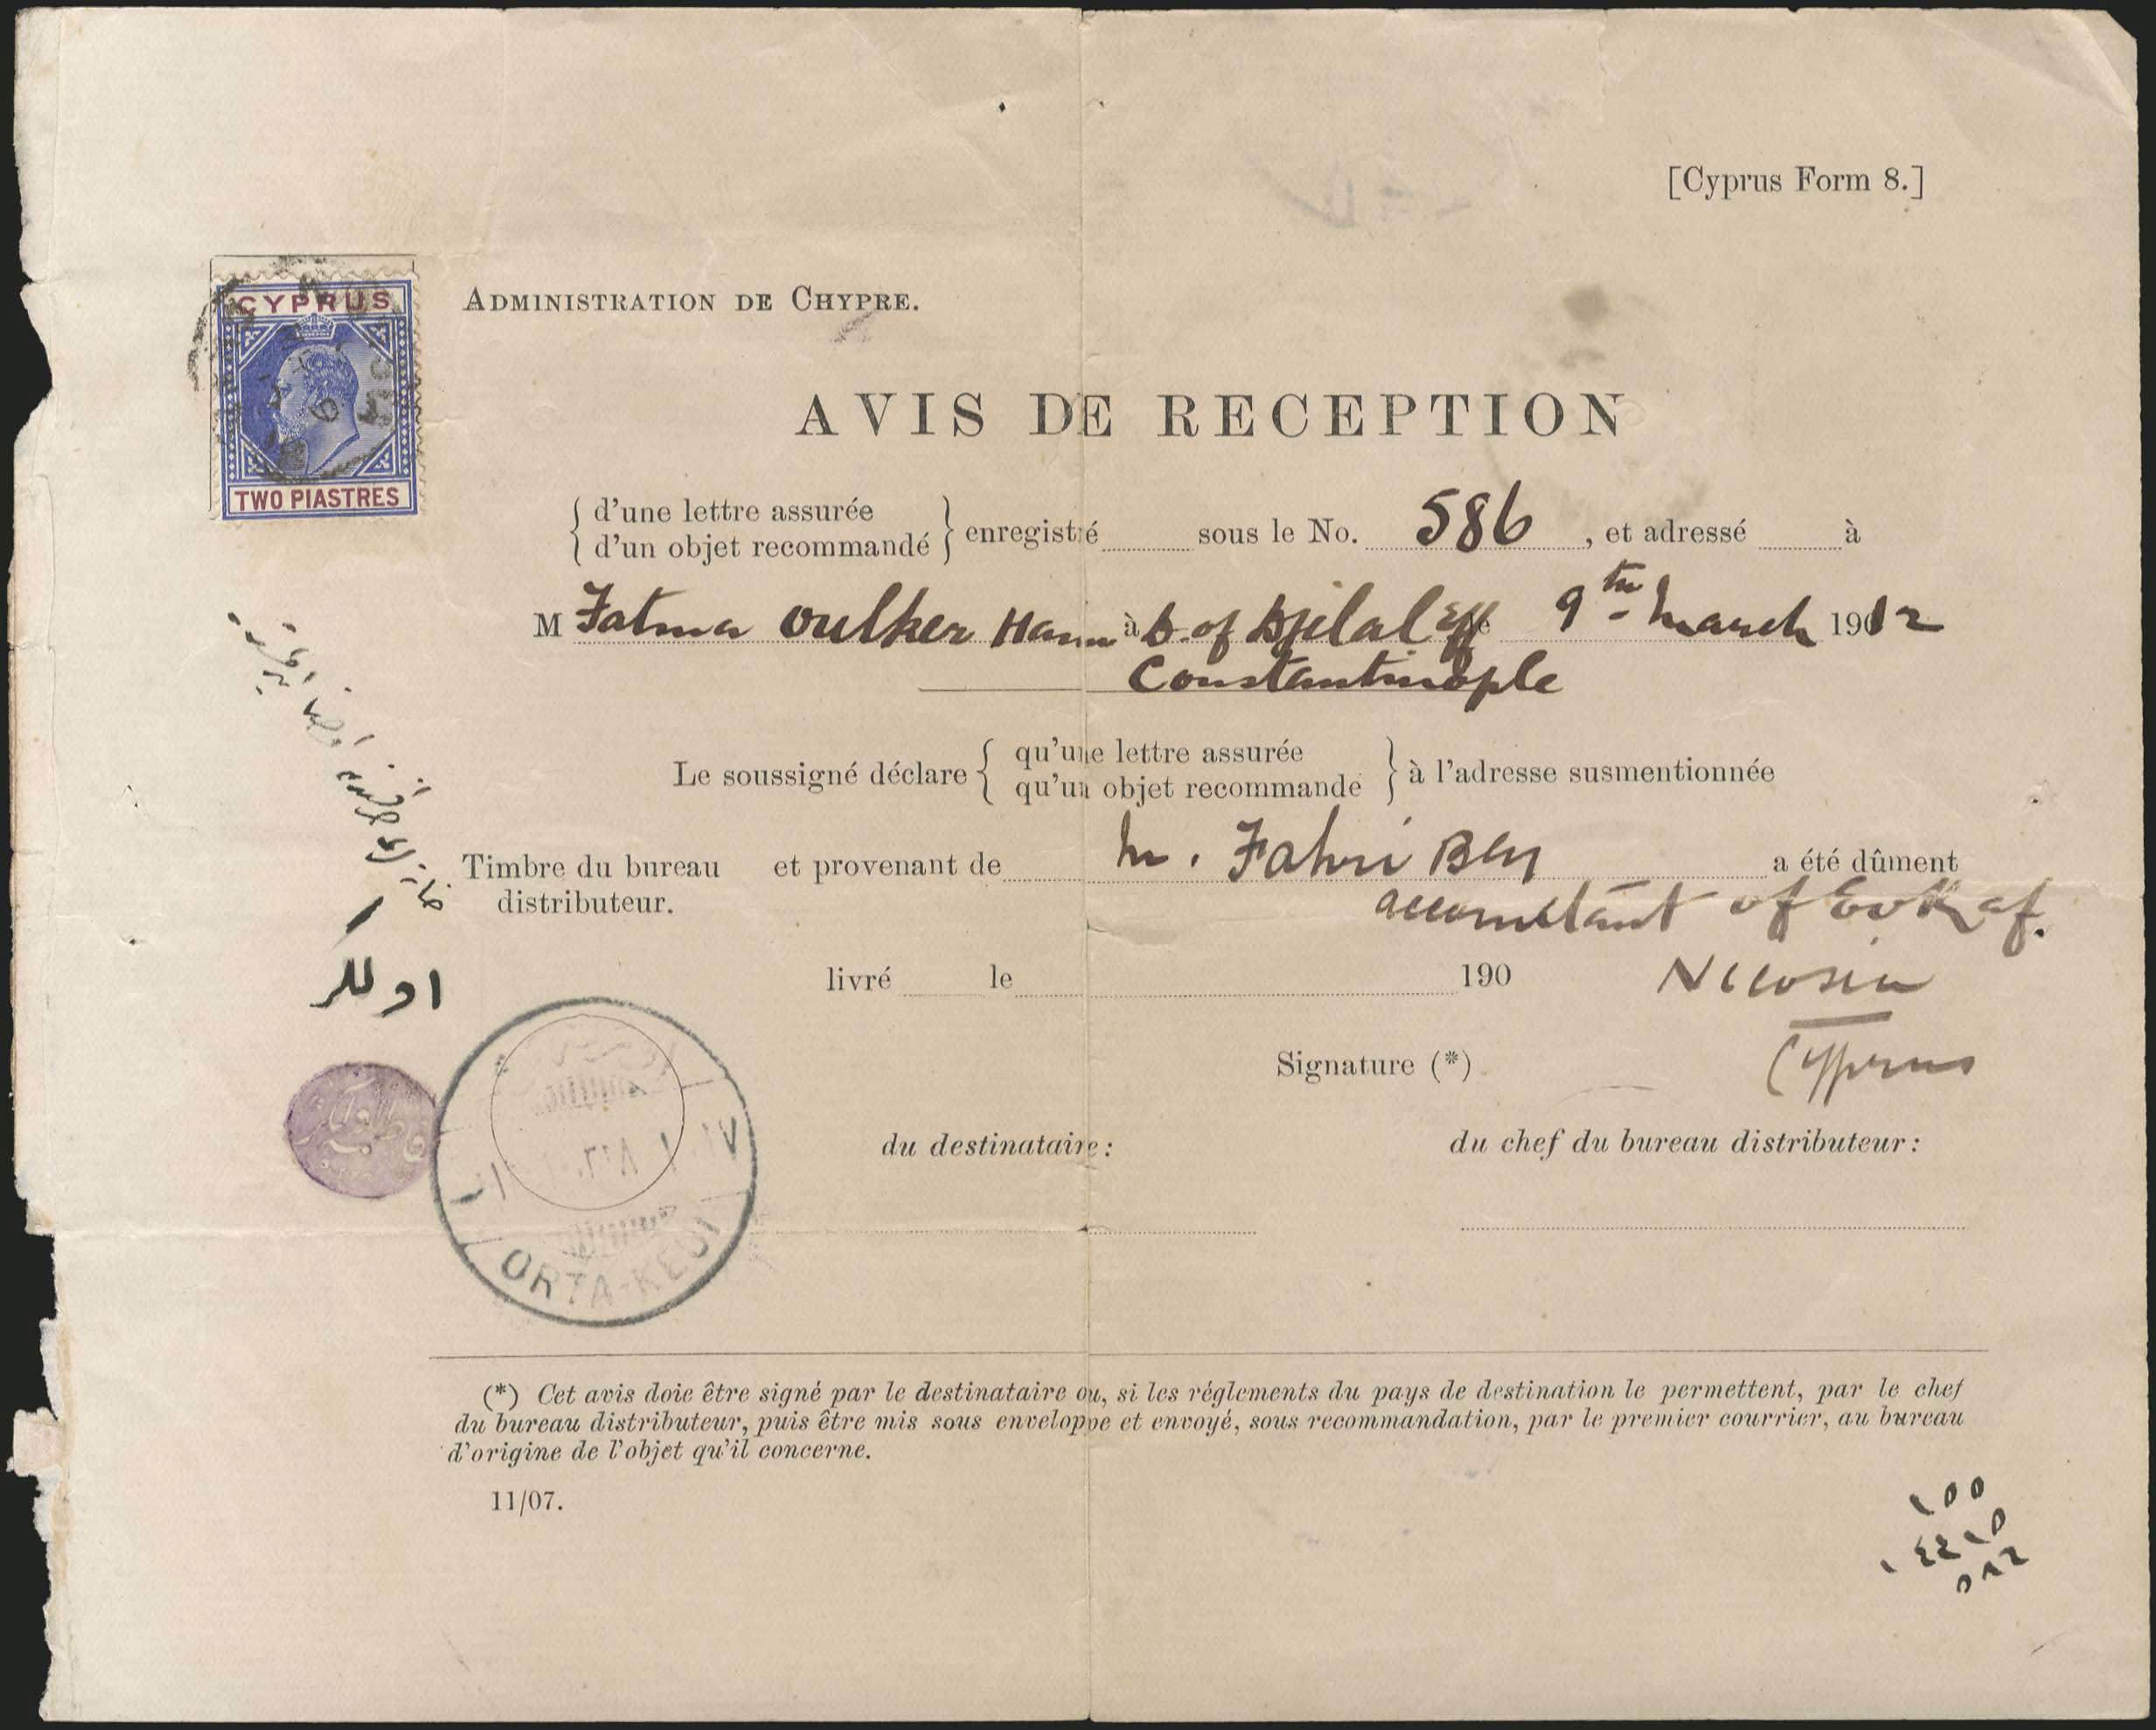 [Cyprus Form 8.]
CYPRUS
TWO PIASTRES
ADMINISTRATION DE CHYPRE.
AVIS DE RECEPTION
{ d'une lettre assurée
{ d'un objet recommandé } enregistré sous le No. 586, et adressé à
M Fatma Oulker Hanm à D. of Djelal Eff 9th March 1912
Constantinople
Le soussigné déclare { qu'une lettre assurée
qu'un objet recommande } à l'adresse susmentionnée
Timbre du bureau et provenant de M. Fahri Bey a été dûment
distributeur. accountant of Evkaf.
livré le 190 Nicosia
Cyprus
اولكر
Signature (*)
du destinataire: du chef du bureau distributeur:
ORTA-KEUI
(*) Cet avis doie être signé par le destinataire ou, si les réglements du pays de destination le permettent, par le chef
du bureau distributeur, puis être mis sous enveloppe et envoyé, sous recommandation, par le premier courrier, au bureau
d'origine de l'objet qu'il concerne.
11/07.
١٥٥
٥٨٦